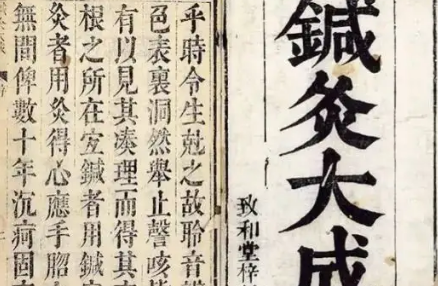 鍼灸大成
致和堂梓
乎時令生尅之故聆音
色表裏洞然舉止謦咳
有以見其凑理而得其
根之所在宐鍼者用鍼
灸者用灸得心應手
無間俾數十年沉疴固